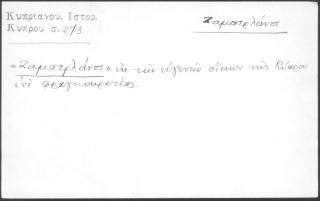 Κυπριανου. Ιστορ.
Κυπρου σ. 273
Ζαμπερλάνος
«Ζαμπερλάνος» εκ των ευγενών οίκων της Κύπρου
επί Φραγκοκρατίας.